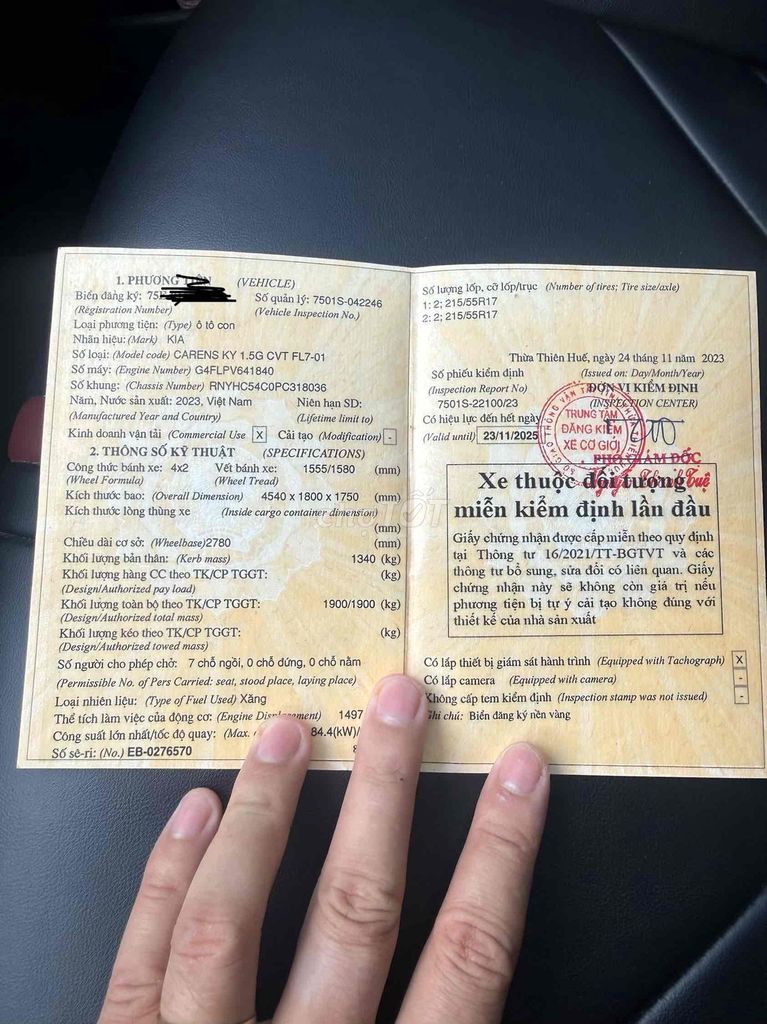 1. PHƯƠNG TIỆN (VEHICLE)
Biển đăng ký: 75
(Registration Number)
Số quản lý: 7501S-042246
(Vehicle Inspection No.)
Loại phương tiện: (Type) ô tô con
Nhãn hiệu: (Mark) KIA
Số loại: (Model code) CARENS KY 1.5G CVT FL7-01
Số máy: (Engine Number) G4FLPV641840
Số khung: (Chassis Number) RNYHC54C0PC318036
Năm, Nước sản xuất: 2023, Việt Nam Niên hạn SD:
(Manufactured Year and Country) (Lifetime limit to)
Kinh doanh vận tải (Commercial Use X Cải tạo (Modification) -
2. THÔNG SỐ KỸ THUẬT (SPECIFICATIONS)
Công thức bánh xe: 4x2 Vết bánh xe: 1555/1580 (mm)
(Wheel Formula) (Wheel Tread)
Kích thước bao: (Overall Dimension) 4540 x 1800 x 1750 (mm)
Kích thước lòng thùng xe (Inside cargo container dimension)
(mm)
Chiều dài cơ sở: (Wheelbase)2780 (mm)
Khối lượng bản thân: (Kerb mass) 1340 (kg)
Khối lượng hàng CC theo TK/CP TGGT: (kg)
(Design/Authorized pay load)
Khối lượng toàn bộ theo TK/CP TGGT: 1900/1900 (kg)
(Design/Authorized total mass)
Khối lượng kéo theo TK/CP TGGT: (kg)
(Design/Authorized towed mass)
Số người cho phép chở: 7 chỗ ngồi, 0 chỗ đứng, 0 chỗ nằm
(Permissible No. of Pers Carried: seat, stood place, laying place)
Loại nhiên liệu: (Type of Fuel Used) Xăng
Thể tích làm việc của động cơ: (Engine Displacement) 1497
Công suất lớn nhất/tốc độ quay: (Max. 84.4(kW)/
Số sê-ri: (No.) EB-0276570
Số lượng lốp, cỡ lốp/trục (Number of tires; Tire size/axle)
1: 2; 215/55R17
2: 2; 215/55R17
Thừa Thiên Huế, ngày 24 tháng 11 năm 2023
Số phiếu kiểm định (Issued on: Day/Month/Year)
(Inspection Report No) ĐƠN VỊ KIỂM ĐỊNH
7501S-22100/23 (INSPECTION CENTER)
Có hiệu lực đến hết ngày
(Valid until) 23/11/2025
TRUNG TÂM
ĐĂNG KIỂM
XE CƠ GIỚI
PHÓ GIÁM ĐỐC
Xe thuộc đối tượng
miễn kiểm định lần đầu
Giấy chứng nhận được cấp miễn theo quy định
tại Thông tư 16/2021/TT-BGTVT và các
thông tư bổ sung, sửa đổi có liên quan. Giấy
chứng nhận này sẽ không còn giá trị nếu
phương tiện bị tự ý cải tạo không đúng với
thiết kế của nhà sản xuất
Có lắp thiết bị giám sát hành trình (Equipped with Tachograph) X
Có lắp camera (Equipped with camera) -
Không cấp tem kiểm định (Inspection stamp was not issued) -
Ghi chú: Biển đăng ký nền vàng